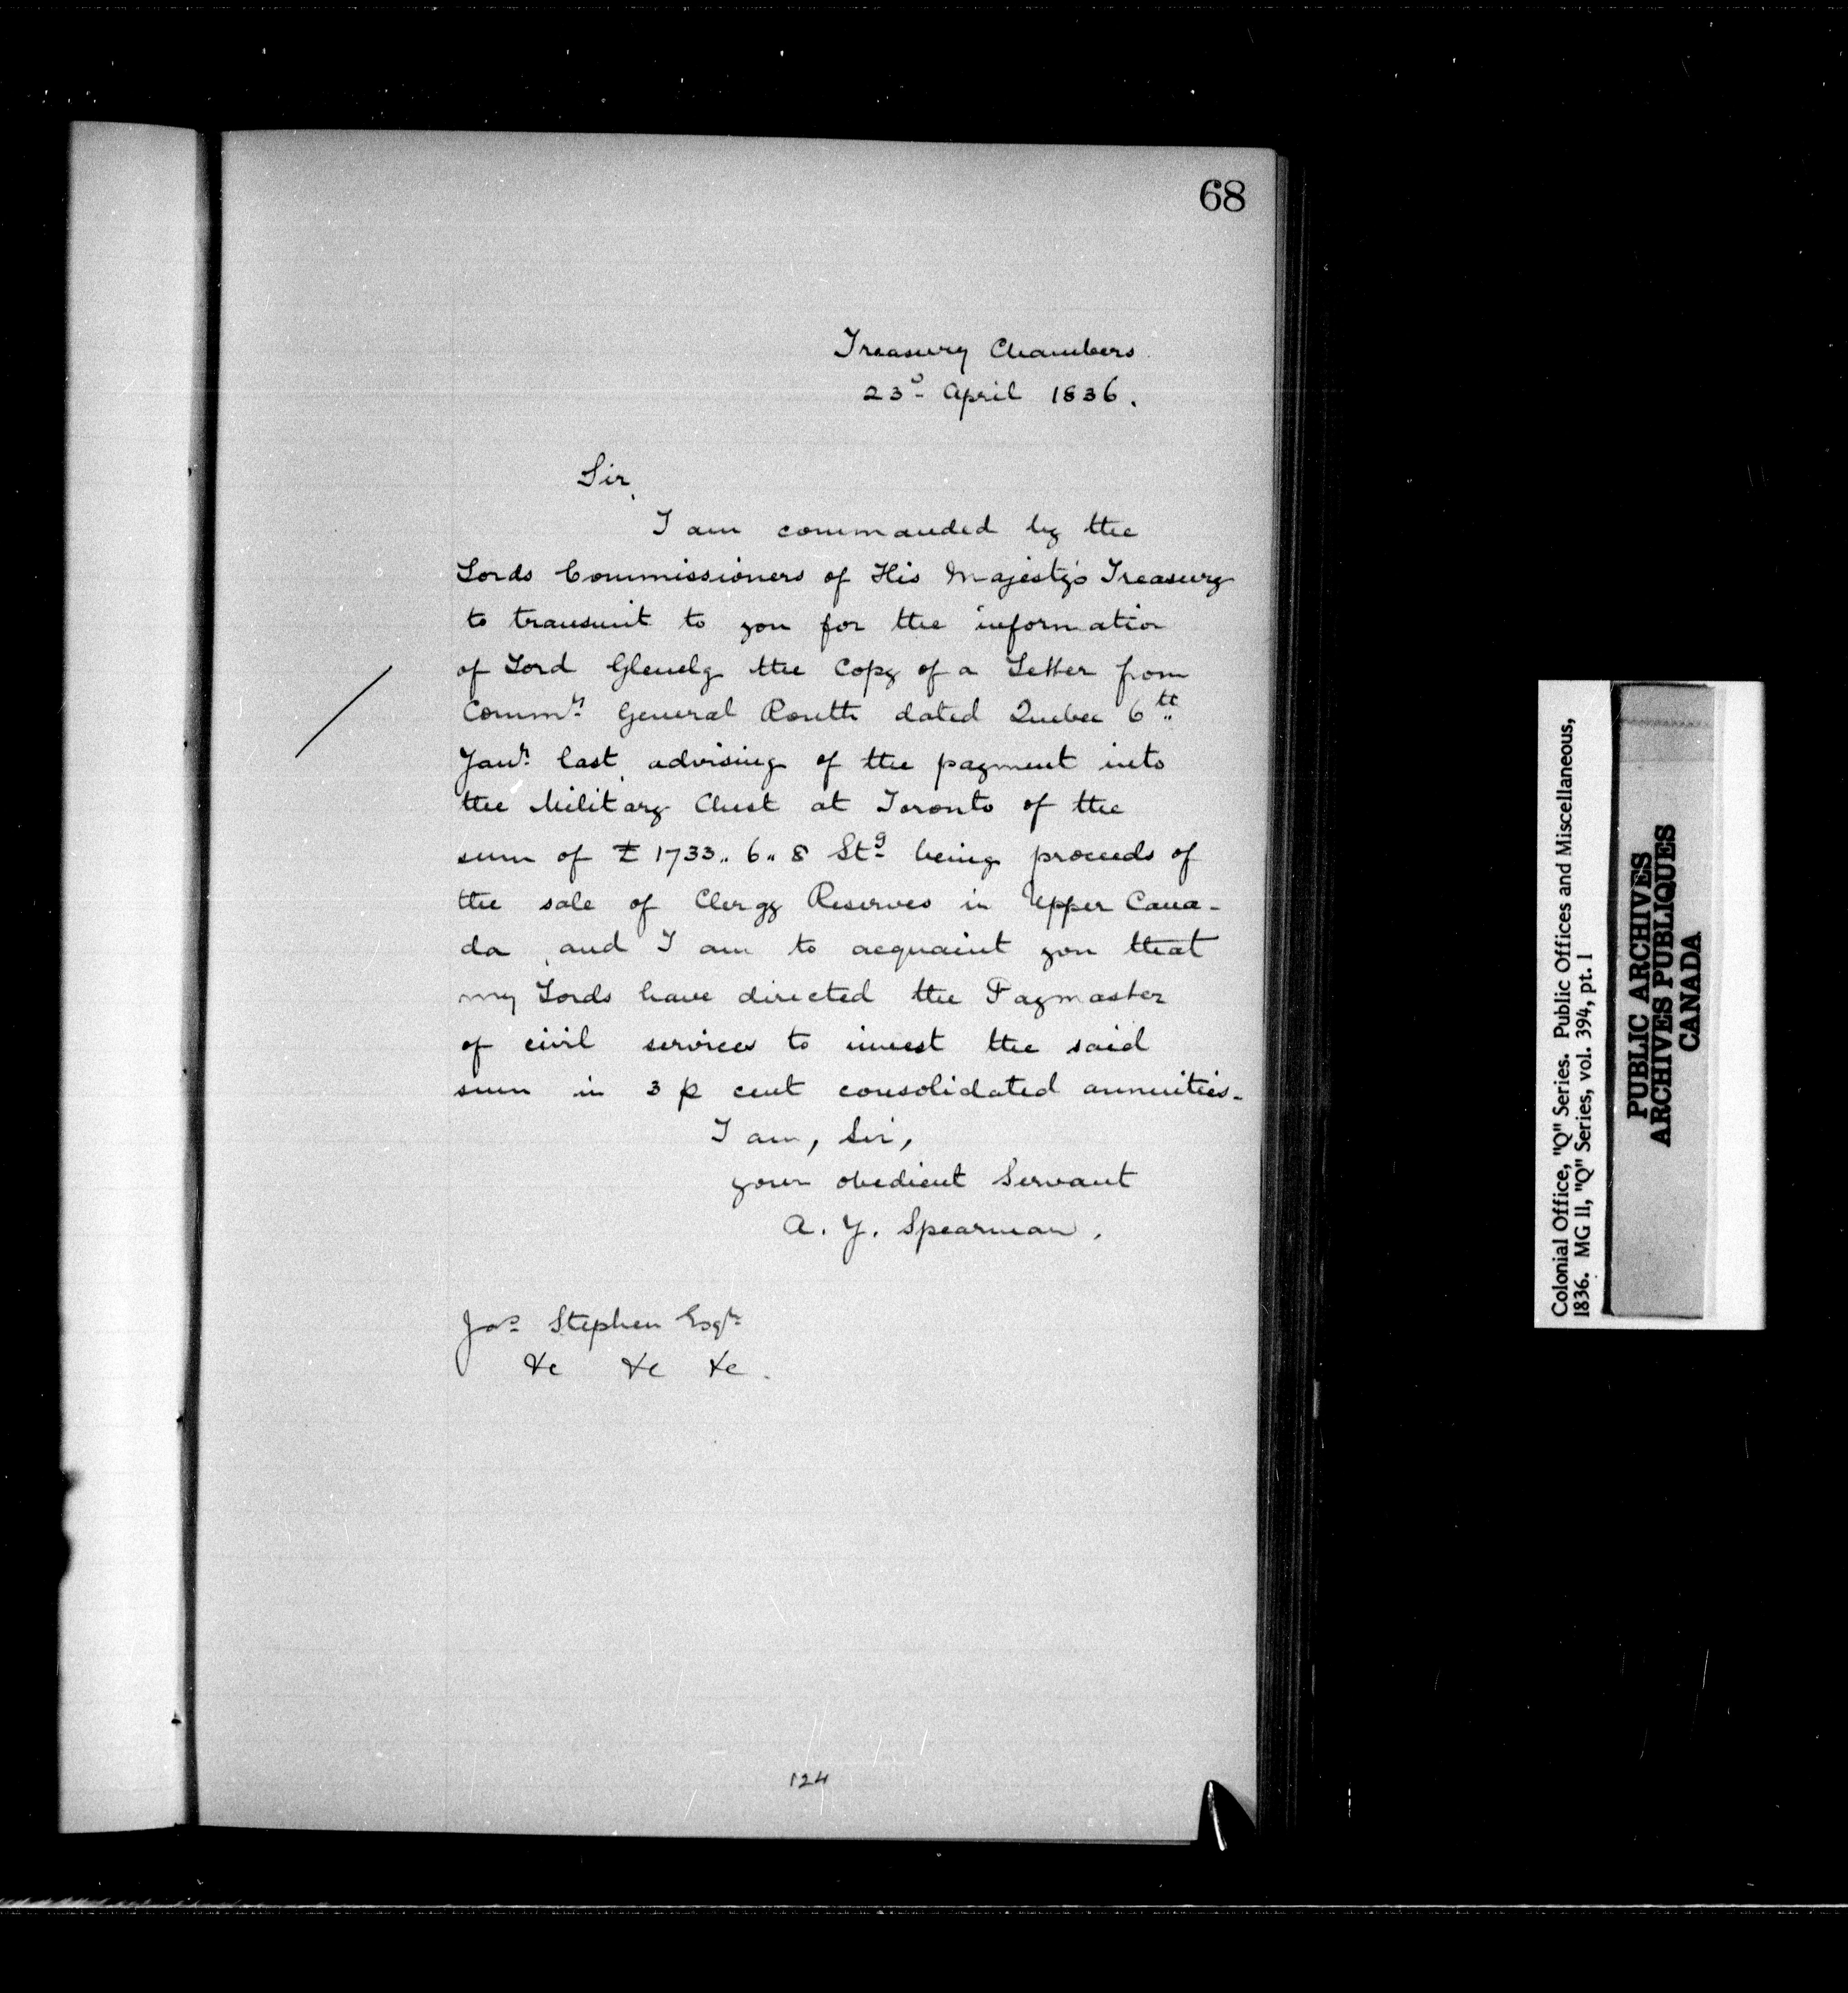 68
Treasury Chambers
23d April 1836.
Sir,
I am commanded by the
Lords Commissioners of His Majesty's Treasury
to transmit to you for the information
of Lord Glenelg the Copy of a Letter from
Commy General Routh dated Quebec 6th
Jany last, advising of the payment into
the Military Chest at Toronto of the
sum of £1733,, 6,, 8 Stg being proceeds of
the sale of Clergy Reserves in Upper Cana-
da, and I am to acquaint you that
my Lords have directed the Paymaster
of civil services to invest the said
sum in 3 p cent consolidated annuities.
I am, Sir,
your obedient Servant
A. Y. Spearman.
Jas Stephen Esqr
&c &c &c.
124
Colonial Office, "Q" Series. Public Offices and Miscellaneous,
1836. MG 11, "Q" Series, vol. 394, pt. 1
PUBLIC ARCHIVES
ARCHIVES PUBLIQUES
CANADA